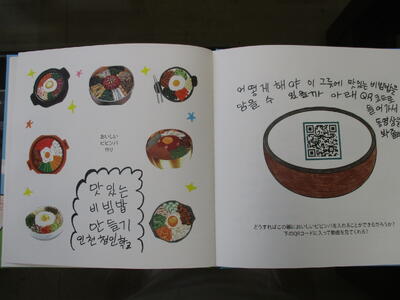 おいしい
ビビンバ
作り
맛있는
비빔밥
만들기
인천청인학교
어떻게 해야 이 그릇에 맛있는 비빔밥을
담을 수 있을까 아래 QR코드로
들어가서
동영상을
봐줄래
どうすればこの器においしいビビンバを入れることができるだろうか?
下のQRコードに入って動画を見てくれる?